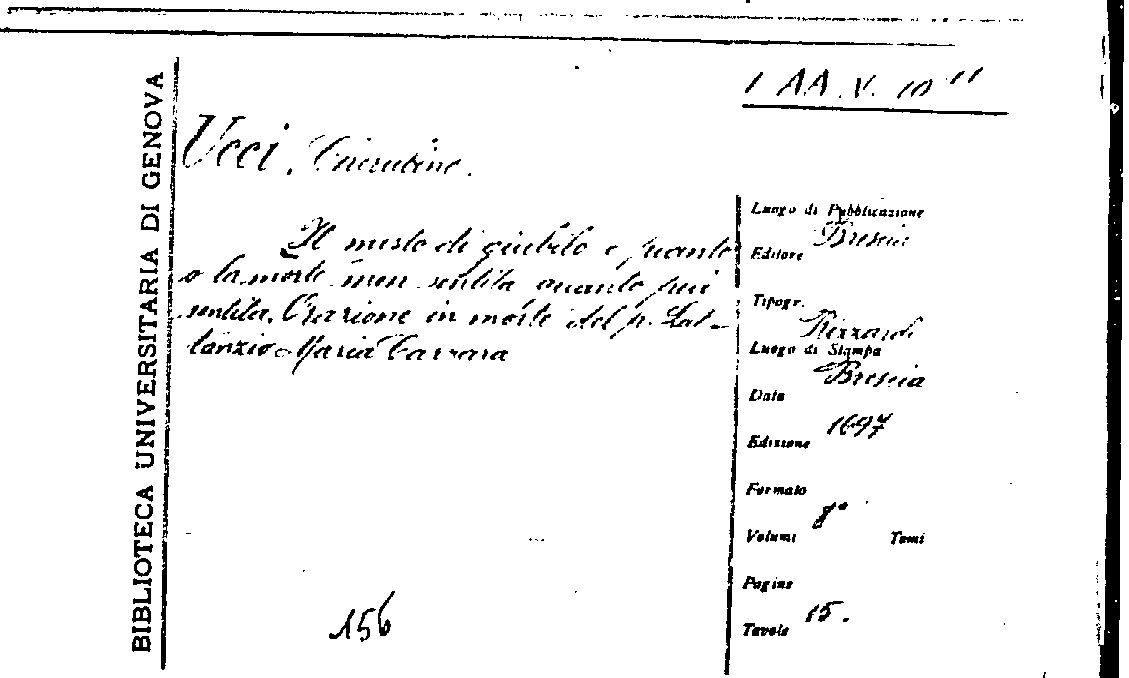 1 AA. V. 10 11
BIBLIOTECA UNIVERSITARIA DI GENOVA
Ucci,
Il misto di giubilo e pianto
o la morte men sentita quanto più
sentita. Orazione in morte del p. Lat-
tanzio Maria Carrara
Luogo di Pubblicazione
Brescia
Editore
Tipogr.
Rizzardi
Luogo di Stampa
Brescia
Data
1697
Edizione
Formato
8°
Volumi Tomi
Pagine
15.
Tavole
156